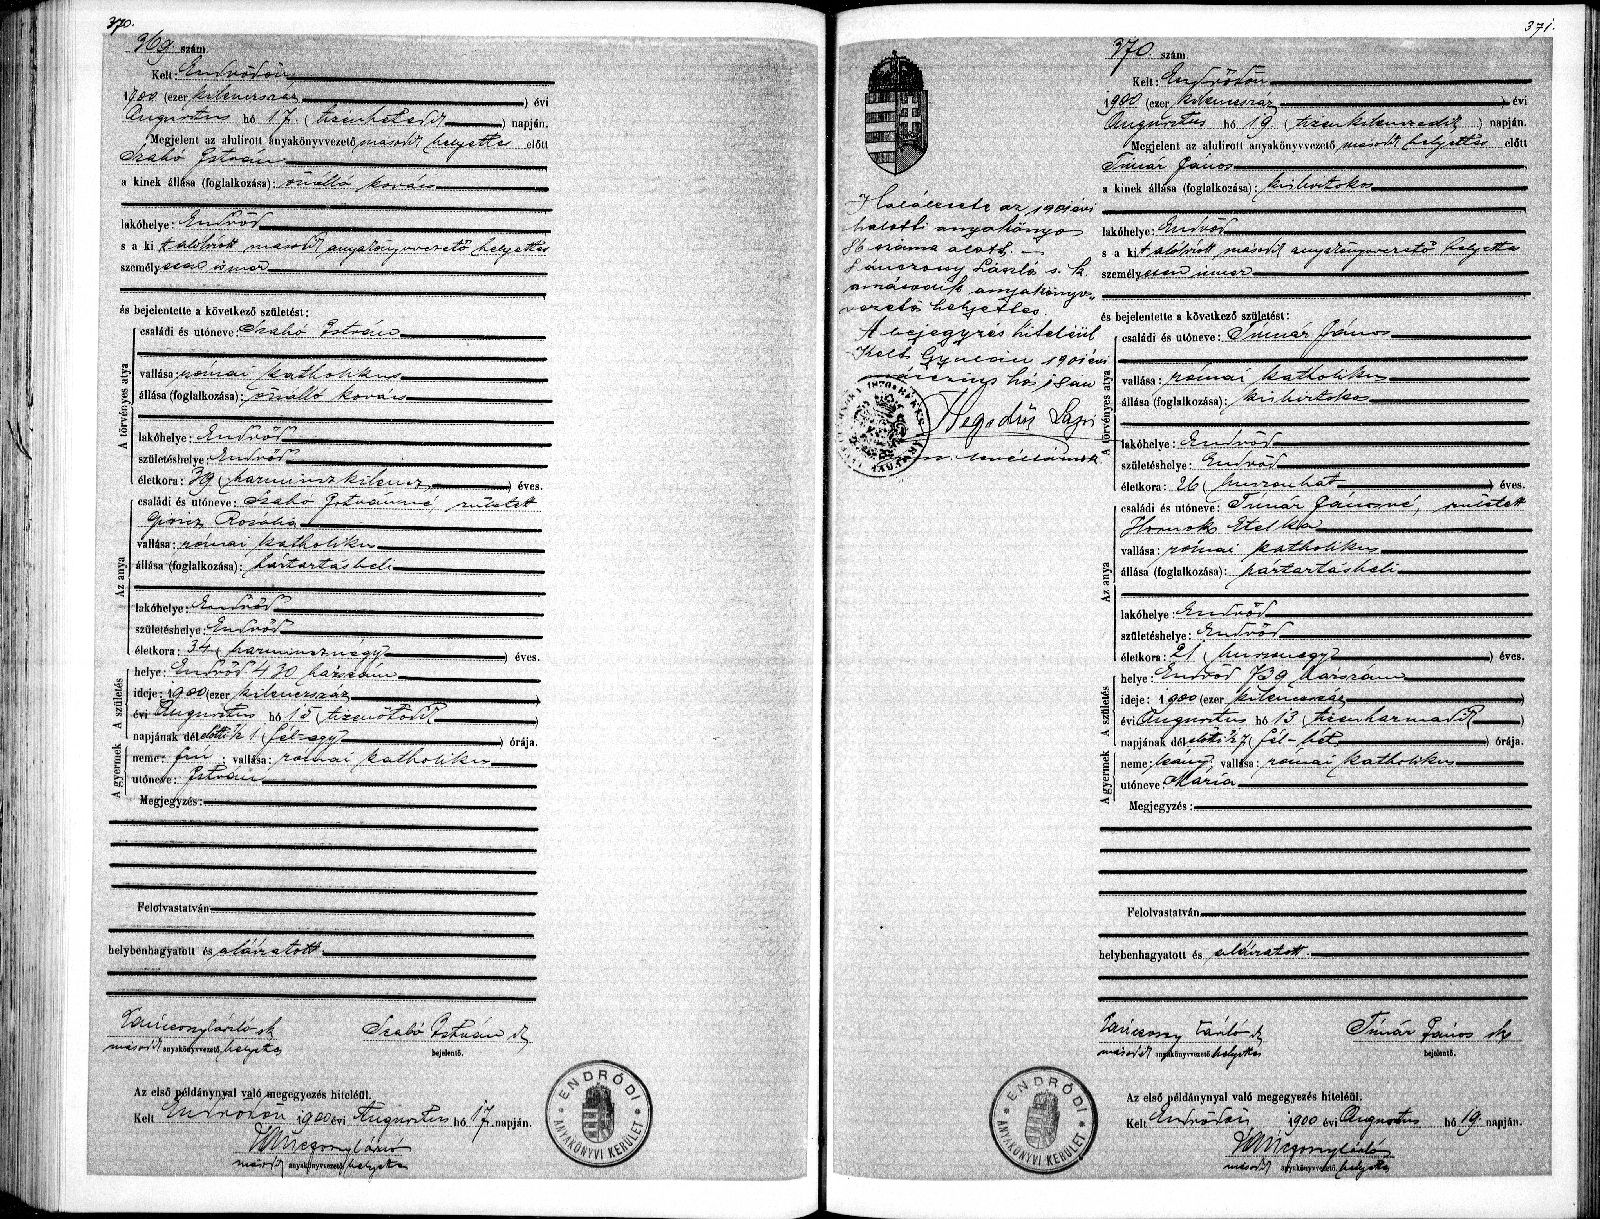 370.
369 szám.
Kelt: Endrődön
1900 (ezer kilencszáz) évi
Augusztus hó 17. (tizenhetedik) napján.
Megjelent az alulirott anyakönyvvezető második helyettes előtt
Szabó István
a kinek állása (foglalkozása): önálló kovács
lakóhelye: Endrőd
s a kit alólirott második anyakönyvvezető helyettes
személyesen ismer
és bejelentette a következő születést:
A törvényes atya
családi és utóneve: Szabó István
vallása: római katholikus
állása (foglalkozása): önálló kovács
lakóhelye: Endrőd
születéshelye: Endrőd
életkora: 39 (harminczkilencz) éves.
Az anya
családi és utóneve: Szabó Istvánné született
Rozália
vallása: római katholikus
állása (foglalkozása): háztartásbeli
lakóhelye: Endrőd
születéshelye: Endrőd
életkora: 34 (harmincznégy) éves.
A születés
helye: Endrőd 430 házszám
ideje: 1900 (ezer kilencszáz)
évi Augusztus hó 15 (tizenötödik)
napjának délelőtti ½1 (fél-egy) órája.
A gyermek
neme: fiú; vallása: római katholikus
utóneve: István
Megjegyzés:
Felolvastatván
helybenhagyatott és aláiratott
Lánczony László sk
második anyakönyvvezető helyettes
Szabó István sk
bejelentő.
Az első példánynyal való megegyezés hiteléül.
Kelt Endrődön 1900 évi Augusztus hó 17 napján.
Lánczony László
második anyakönyvvezető helyettes
ENDRŐDI
ANYAKÖNYVI KERÜLET
371.
Halálesete az 1901 évi
halotti anyakönyv
86 száma alatt. —
Lánczony László s. k.
második anyakönyv-
vezető helyettes.
A bejegyzés hiteléül
Kelt Gyulán 1901 évi
márczius hó 18 án
Hegedüs
370. szám.
Kelt: Endrődön
1900 (ezer kilencszáz) évi
Augusztus hó 19. (tizenkilenczedik) napján.
Megjelent az alulirott anyakönyvvezető második helyettes előtt
Tímár János
a kinek állása (foglalkozása): kisbirtokos
lakóhelye: Endrőd
s a kit alólirott második anyakönyvvezető helyettes
személyesen ismer
és bejelentette a következő születést:
A törvényes atya
családi és utóneve: Tímár János
vallása: római katholikus
állása (foglalkozása): kisbirtokos
lakóhelye: Endrőd
születéshelye: Endrőd
életkora: 26 (huszonhat) éves.
Az anya
családi és utóneve: Tímár Jánosné, született
Hornok Etelka
vallása: római katholikus
állása (foglalkozása): háztartásbeli
lakóhelye: Endrőd
születéshelye: Endrőd
életkora: 21 (huszonegy) éves.
A születés
helye: Endrőd 739 házszám
ideje: 1900 (ezer kilencszáz)
évi Augusztus hó 13 (tizenharmadik)
napjának délelőtti ½7 (fél-hét) órája.
A gyermek
neme: leány; vallása: római katholikus
utóneve: Mária
Megjegyzés:
Felolvastatván
helybenhagyatott és aláiratott.
Lánczony László sk
második anyakönyvvezető helyettes
Tímár János sk
bejelentő.
Az első példánynyal való megegyezés hiteléül.
Kelt Endrődön, 1900 évi Augusztus hó 19. napján.
Lánczony László
második anyakönyvvezető helyettes
ENDRŐDI
ANYAKÖNYVI KERÜLET